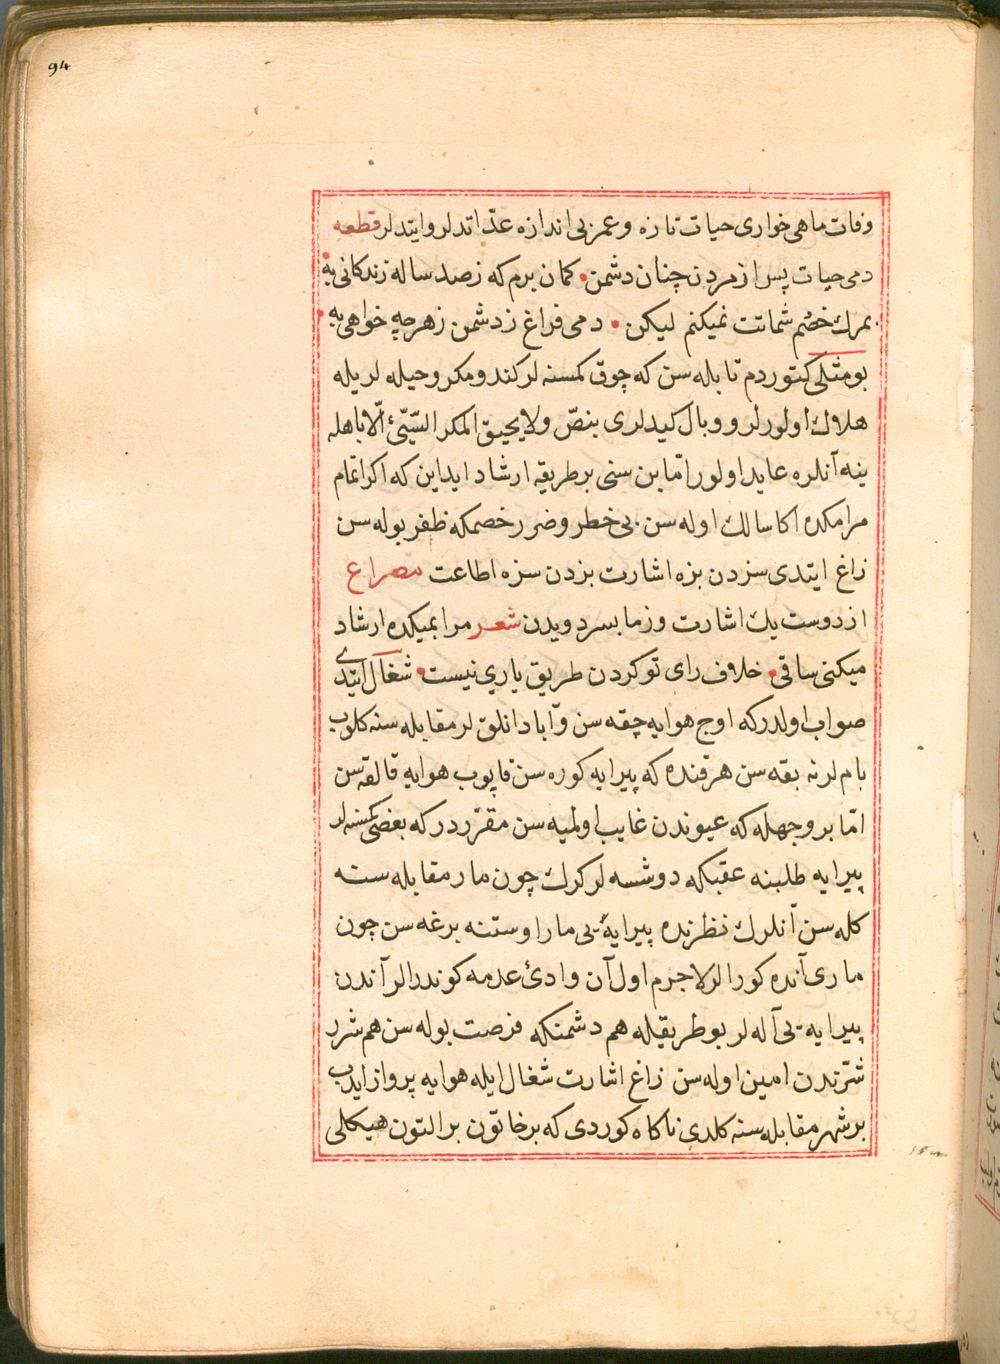 94
وفات ماهی خواری حیات تازه وعمر بی اندازه عدّ اتدلر وایتدلر قطعه
دمی حیات پس از مردن چنان دشمن • کمان برم که ز صد ساله زندکانی به
بمرك خصم شماتت نمیکنم لیکن • دمی فراغ ز دشمن ز هرچه خواهی به •
بو مثلی کتوردم تا بله سن که چوق کمسنه لر کندو مکر وحیله لریله
هلاك اولورلر و وبال کیدلری بنصّ ولا یحیق المکر السّیّئ الّا باهله
ینه آنلره عاید اولور امّا بن سنی بر طریقه ارشاد ایداین که اکر اتمام
مرامکده اکا سالك اوله سن بی خطر وضرر خصمکه ظفر بوله سن
زاغ ایتدی سزدن بزه اشارت بزدن سزه اطاعت مصراع
از دوست یك اشارت وز ما بسر دویدن شعر مرا بمیکده ارشاد
میکنی ساقی • خلاف رای تو کردن طریق یاری نیست • شغال ایتدی
صواب اولدر که اوج هوایه چقه سن و آبادانلق لر مقابله سنه کلوب
بام لرنه بقه سن هر قنده که پیرایه کوره سن قاپوب هوایه قالقه سن
امّا بر وجهله که عیوندن غایب اولمیه سن مقرّردر که بعضی کمسنه لر
پیرایه طلبنه عقبکه دوشسه لر کرك چون مار مقابله سنه
کله سن آنلرك نظرنده پیرایه یی مار اوستنه برغه سن چون
ماری آنده کورالر لاجرم اول آن وادئ عدمه کوندرالر آندن
پیرایه یی آله لر بو طریقیله هم دشمنکه فرصت بوله سن هم شرر
شرّندن امین اوله سن زاغ اشارت شغال ایله هوایه پرواز ایدب
بر شهر مقابله سنه کلدی ناکاه کوردی که بر خاتون بر التون هیکلی